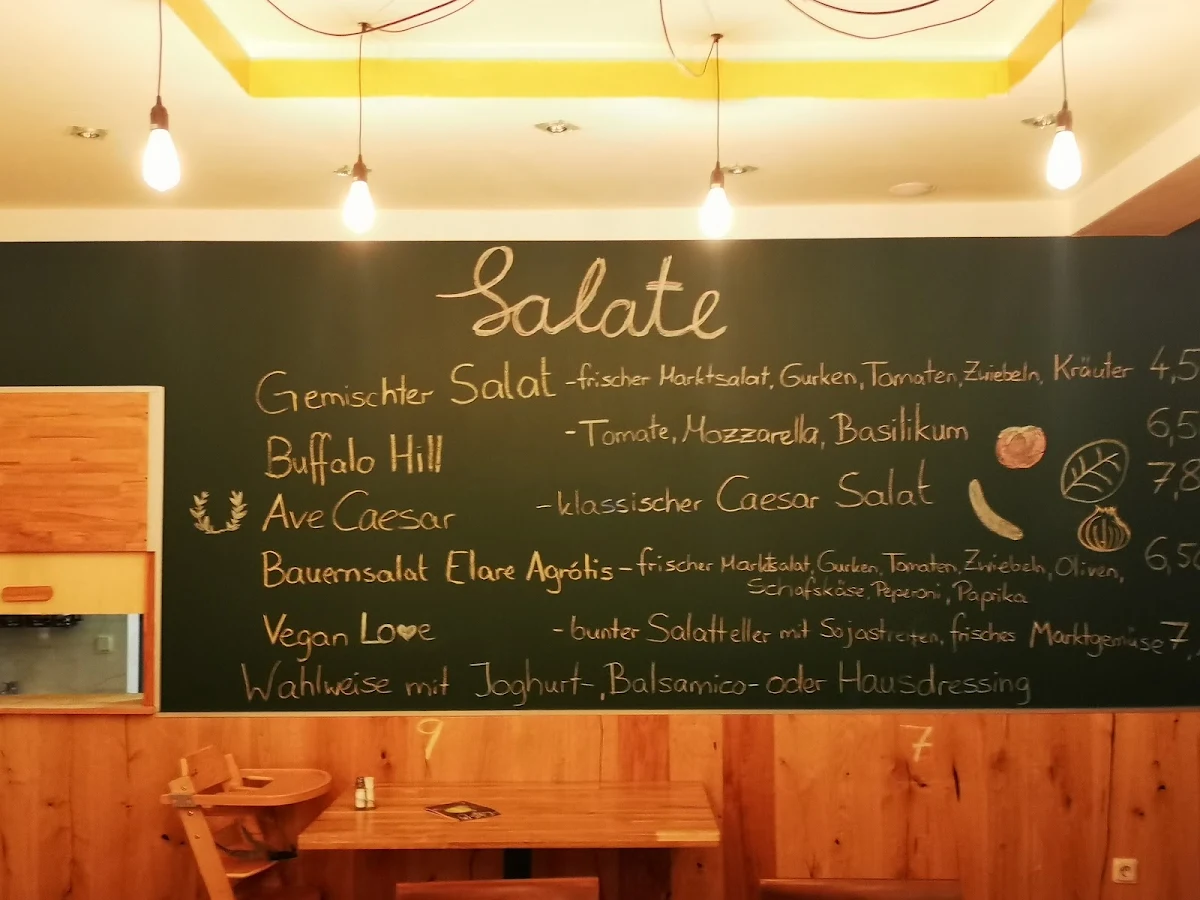 Salate
Gemischter Salat - frischer Marktsalat, Gurken, Tomaten, Zwiebeln, Kräuter 4,5
Buffalo Hill - Tomate, Mozzarella, Basilikum 6,5
Ave Caesar - klassischer Caesar Salat 7,8
Bauernsalat Elare Agrótis - frischer Marktsalat, Gurken, Tomaten, Zwiebeln, Oliven, 6,50
Schafskäse, Peperoni, Paprika
Vegan Love - bunter Salatteller mit Sojastreifen, frisches Marktgemüse 7,
Wahlweise mit Joghurt-, Balsamico- oder Hausdressing
9 7